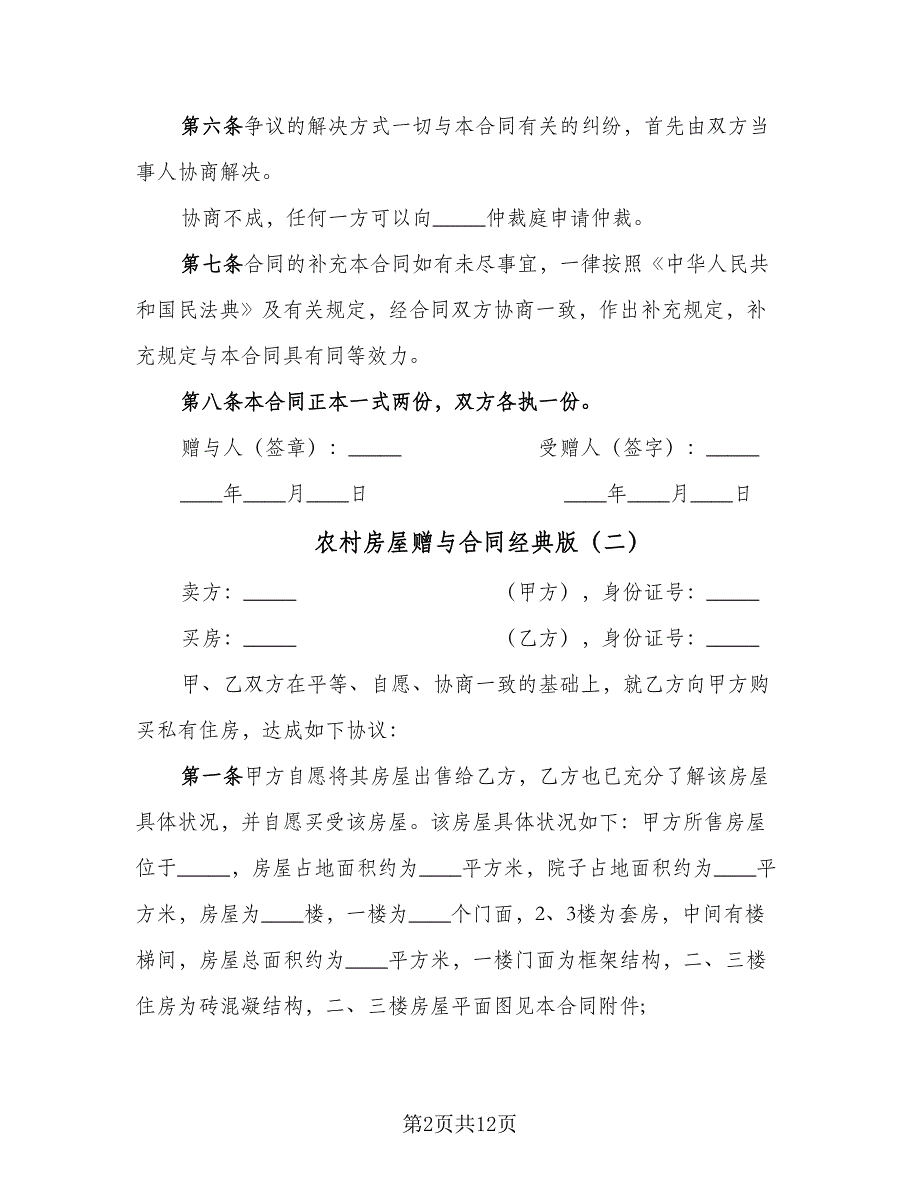 第六条争议的解决方式一切与本合同有关的纠纷，首先由双方当
事人协商解决。
协商不成，任何一方可以向_____仲裁庭申请仲裁。
第七条合同的补充本合同如有未尽事宜，一律按照《中华人民共
和国民法典》及有关规定，经合同双方协商一致，作出补充规定，补
充规定与本合同具有同等效力。
第八条本合同正本一式两份，双方各执一份。
赠与人（签章）：_____ 受赠人（签字）：_____
____年____月____日 ____年____月____日
农村房屋赠与合同经典版（二）
卖方：_____ （甲方），身份证号：_____
买房：_____ （乙方），身份证号：_____
甲、乙双方在平等、自愿、协商一致的基础上，就乙方向甲方购
买私有住房，达成如下协议：
第一条甲方自愿将其房屋出售给乙方，乙方也已充分了解该房屋
具体状况，并自愿买受该房屋。该房屋具体状况如下：甲方所售房屋
位于_____，房屋占地面积约为____平方米，院子占地面积约为____平
方米，房屋为____楼，一楼为____个门面，2、3楼为套房，中间有楼
梯间，房屋总面积约为____平方米，一楼门面为框架结构，二、三楼
住房为砖混凝结构，二、三楼房屋平面图见本合同附件;
第2页共12页